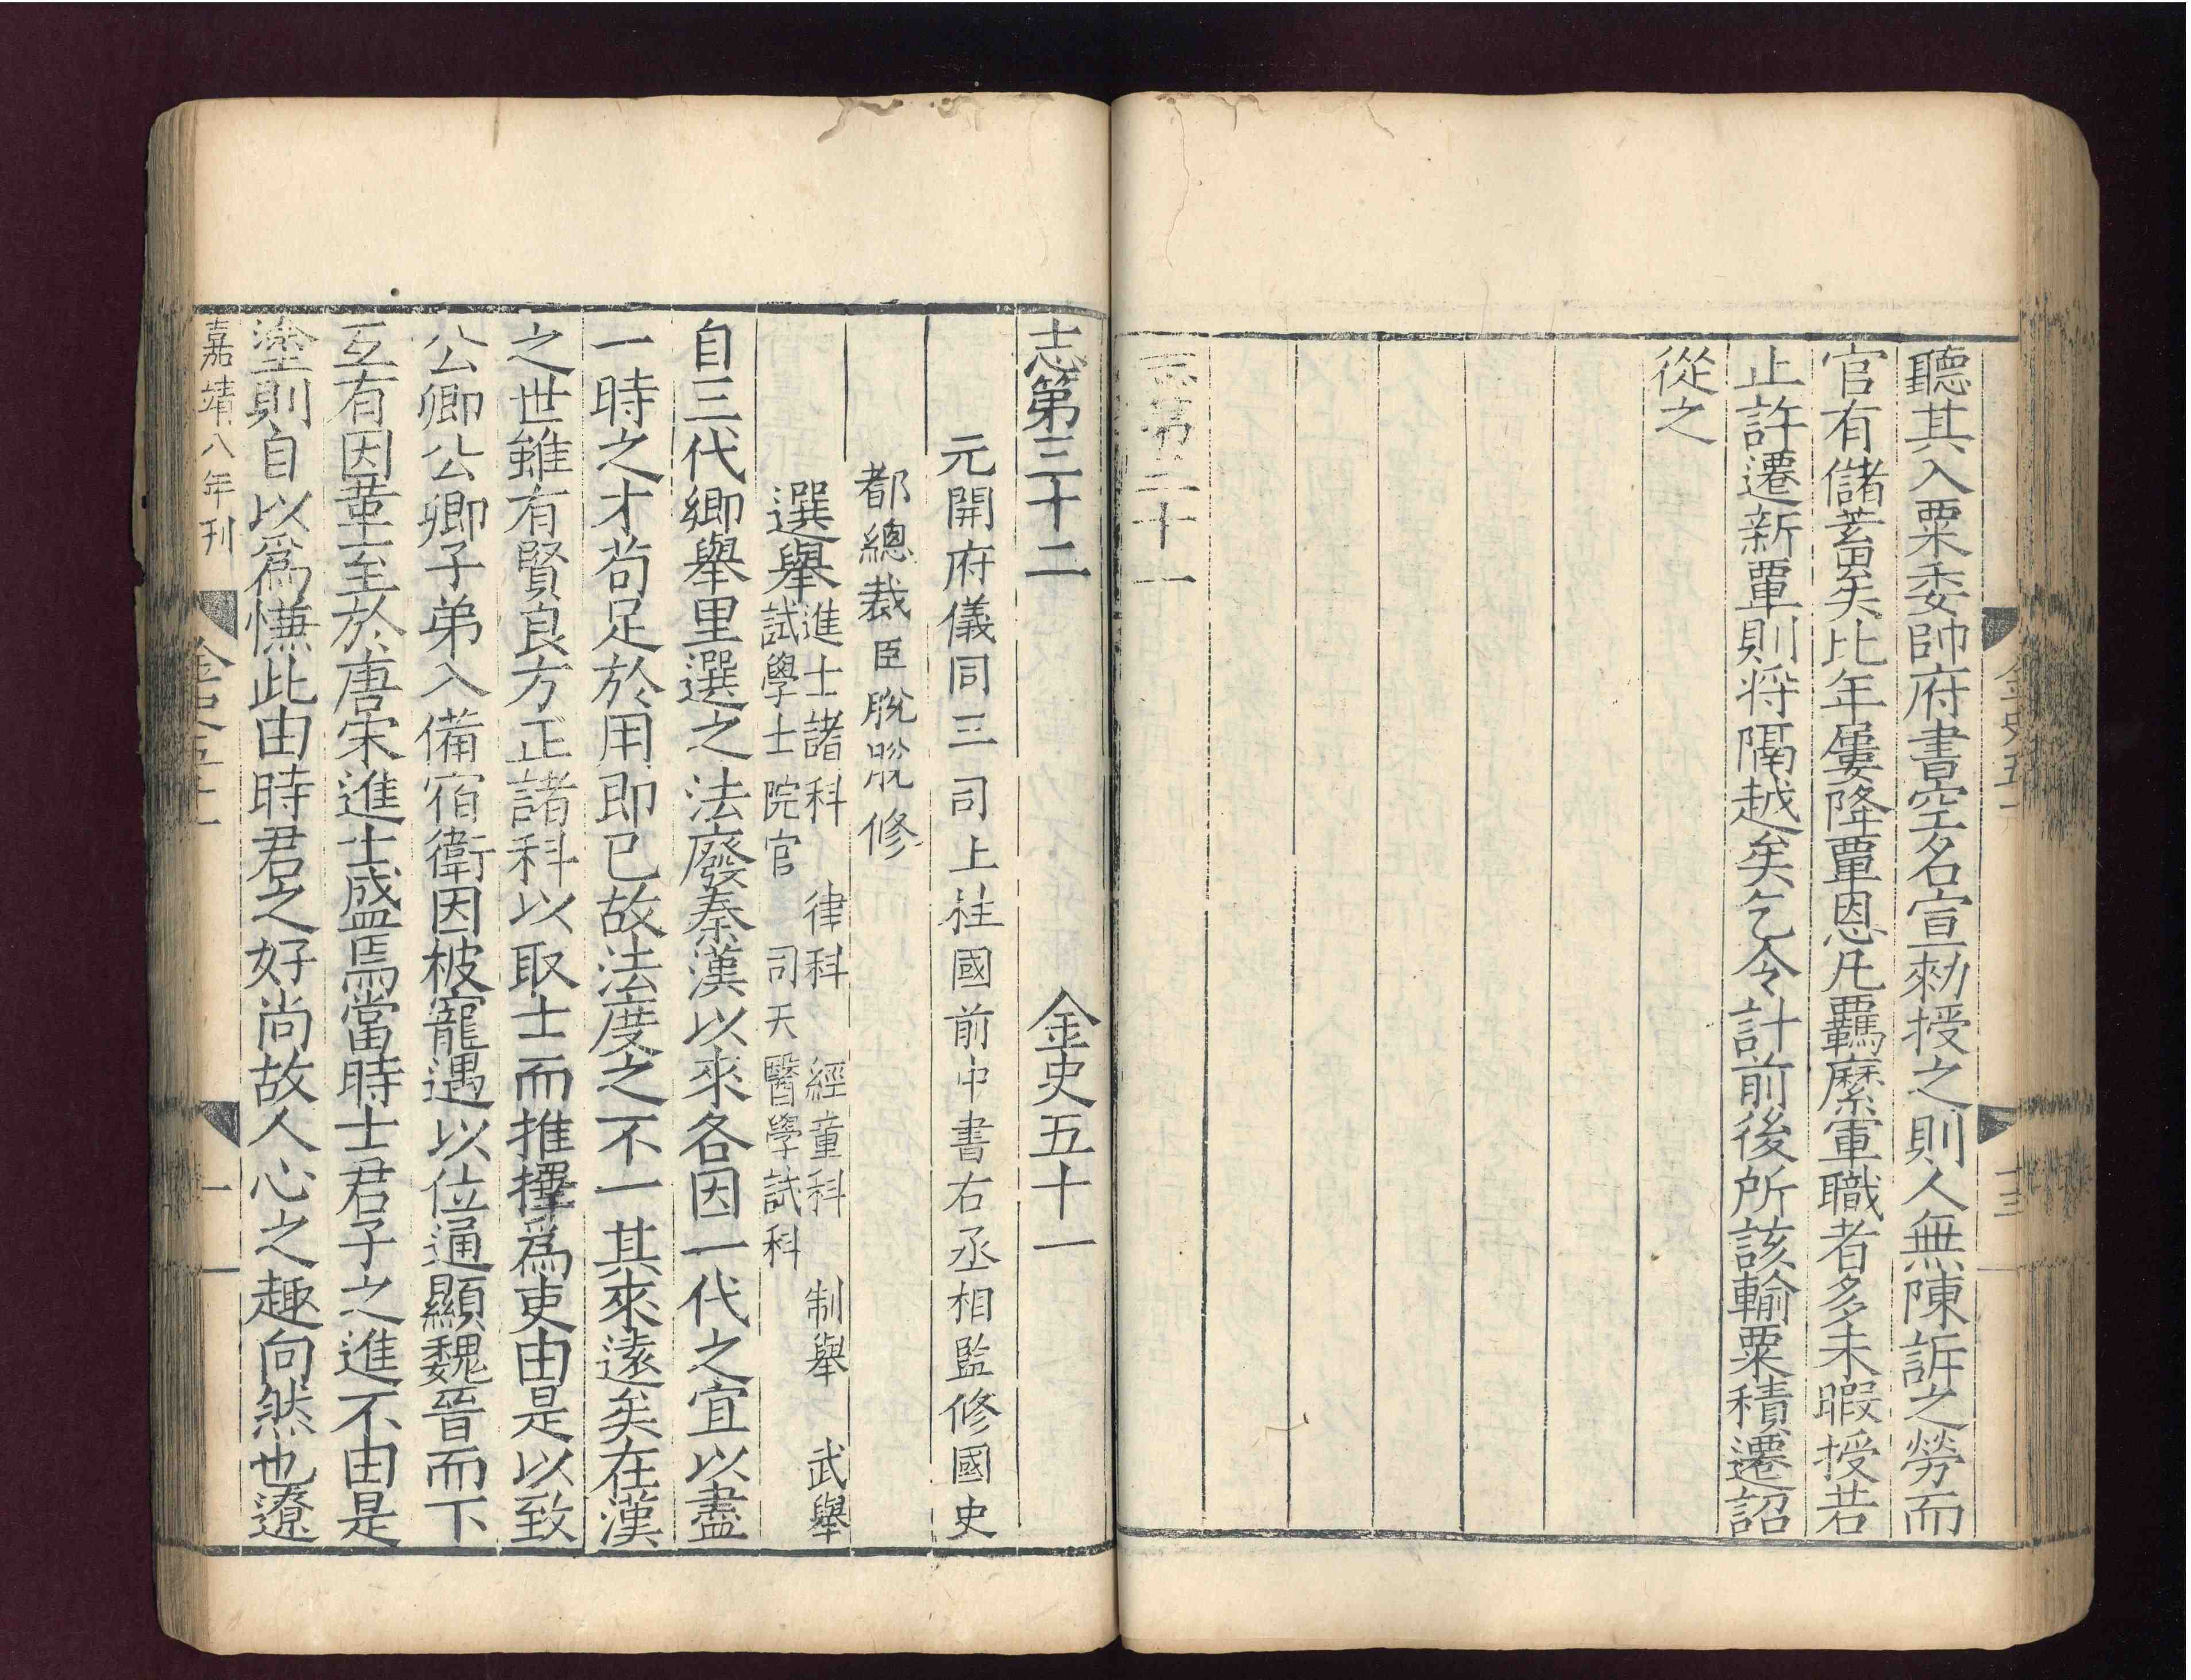 聽其入粟委帥府書空名宣勑授之則人無陳訴之勞而
官有儲蓄矣比年屢降覃恩凡羈縻軍職者多未暇授若
止許遷新覃則将隔越矣乞令計前後所該輸粟積遷詔
從之
志第三十一
志第三十二 金史五十一
元開府儀同三司上柱國前中書右丞相監修國史
都總裁臣脫脫修
選舉進士諸科 律科 經童科 制舉 武舉
試學士院官 司天醫學試科
自三代鄉舉里選之法廢秦漢以來各因一代之宜以盡
一時之才茍足於用即已故法度之不一其來遠矣在漢
之世雖有賢良方正諸科以取士而推擇爲吏由是以致
公卿公卿子弟入備宿衛因被寵遇以位通顯魏晉而下
互有因革至於唐宋進士盛焉當時士君子之進不由是
塗則自以爲慊此由時君之好尚故人心之趣向然也遼
嘉靖八年刊 金史五十一 一